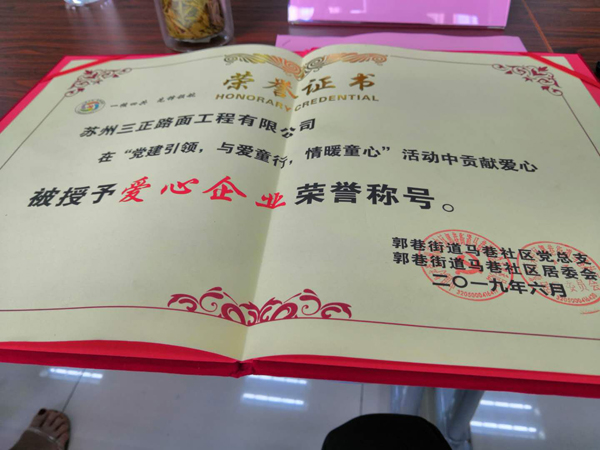 荣誉证书
HONORARY CREDENTIAL
苏州三正路面工程有限公司
在“党建引领，与爱童行，情暖童心”活动中贡献爱心
被授予爱心企业荣誉称号。
郭巷街道马巷社区党总支
郭巷街道马巷社区居委会
二〇一九年六月